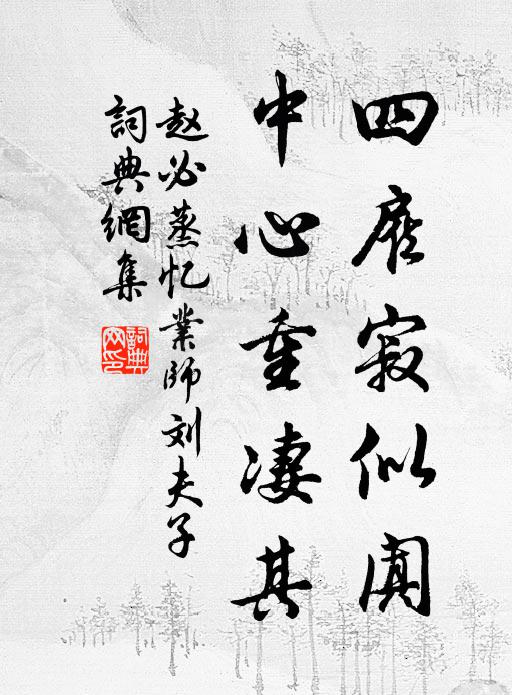 四寂似阒
中心重凄其
赵必蒸忆業師刘夫子
詞典網集
詞典
网印